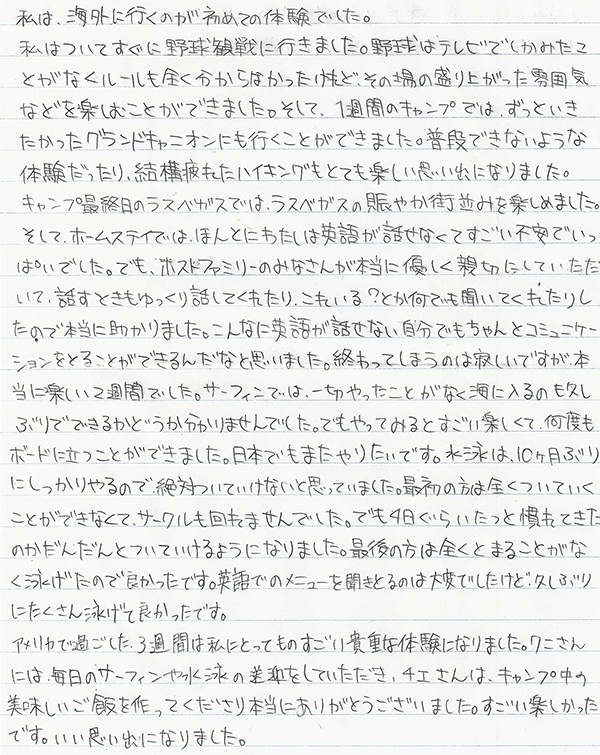 私は、海外に行くのが初めての体験でした。
私はついてすぐに野球観戦に行きました。野球はテレビでしかみたこ
とがなくルールも全く分からなかったけれど、その場の盛り上がった雰囲気
などを楽しむことができました。そして、1週間のキャンプでは、ずっといき
たかったグランドキャニオンにも行くことができました。普段できないような
体験だったり、結構疲れたハイキングもとても楽しい思い出になりました。
キャンプ最終日のラスベガスでは、ラスベガスの賑やか街並みを楽しめました。
そして、ホームステイでは、ほんとにわたしは英語が話せなくてすごい不安でいっ
ぱいでした。でも、ホストファミリーのみなさんが本当に優しく親切にしていただ
いて、話すときもゆっくり話してくれたり、これいる?とか何でも聞いてくれたりし
たので本当に助かりました。こんなに英語が話せない自分でもちゃんとコミュニケー
ションをとることができるんだなと思いました。終わってしまうのは寂しいですが、本
当に楽しい2週間でした。サーフィンでは、一切やったことがなく海に入るのも久し
ぶりでできるかどうか分かりませんでした。でもやってみるとすごい楽しくて、何度も
ボードに立つことができました。日本でもまたやりたいです。水泳は、10ヶ月ぶり
にしっかりやるので、絶対ついていけないと思っていました。最初の方は全くついていく
ことができなくて、サークルも回れませんでした。でも4日ぐらいたっと慣れてきた
のかだんだんとついていけるようになりました。最後の方は全くとまることがな
く泳げたので良かったです。英語でのメニューを聞きとるのは大変でしたけど、久しぶり
にたくさん泳げて良かったです。
アメリカで過ごした、3週間は私にとってものすごい貴重な体験になりました。クニさん
には、毎日のサーフィンや水泳の送迎をしていただき、チエさんは、キャンプ中の
美味しいご飯を作ってくださり本当にありがとうございました。すごい楽しかった
です。いい思い出になりました。